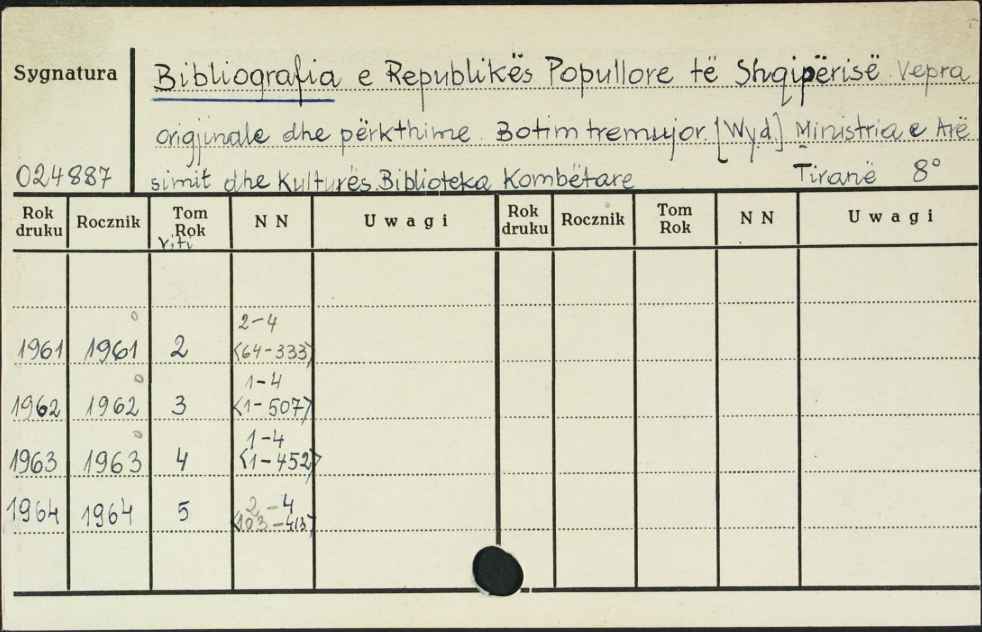 Sygnatura
Bibliografia e Republikës Popullore të Shqipërisë Vepra
origjinale dhe përkthime. Botim tremujor. [Wyd.] Ministria e Arë
024887 simit dhe Kulturës Biblioteka Kombëtare Tiranë 8°
Rok druku Rocznik Tom Rok NN Uwagi Rok druku Rocznik Tom Rok NN Uwagi
Viti
2-4
1961 1961 2 <64-333>
1-4
1962 1962 3 <1-507>
1-4
1963 1963 4 <1-452>
2-4
1964 1964 5 <103-413>